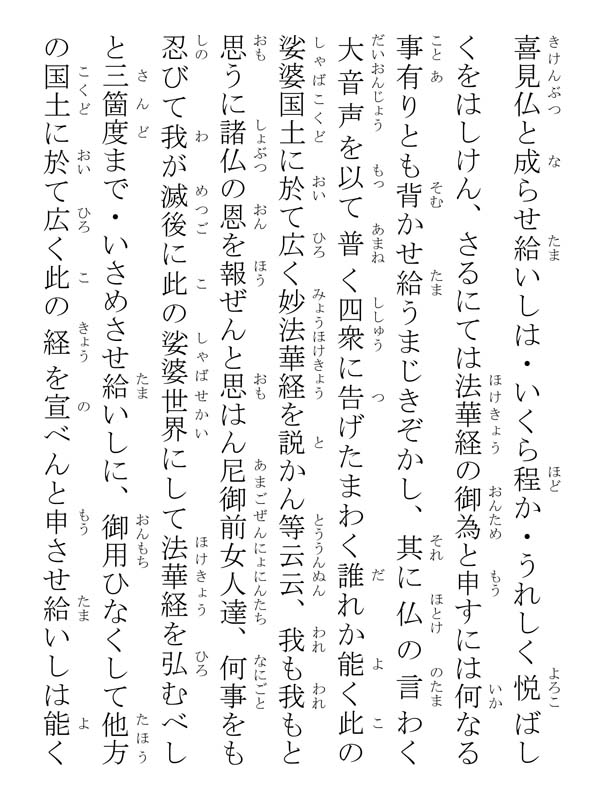 喜見仏と成らせ給いしは・いくら程か・うれしく悦ばし
くをはしけん、さるにては法華経の御為と申すには何なる
事有りとも背かせ給うまじきぞかし、其に仏の言わく
大音声を以て普く四衆に告げたまわく誰れか能く此の
娑婆国土に於て広く妙法華経を説かん等云云、我も我もと
思うに諸仏の恩を報ぜんと思はん尼御前女人達、何事をも
忍びて我が滅後に此の娑婆世界にして法華経を弘むべし
と三箇度まで・いさめさせ給いしに、御用ひなくして他方
の国土に於て広く此の経を宣べんと申させ給いしは能く